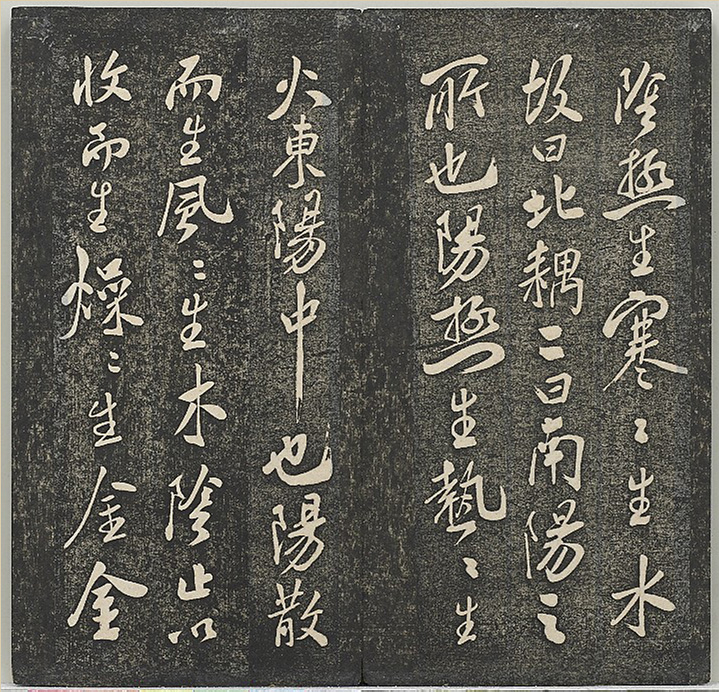 陰極生寒〻生水
故曰北耦二曰南陽之
所也陽極生熱〻生
火東陽中也陽散
而生風〻生木陰止以
收而生燥〻生金金